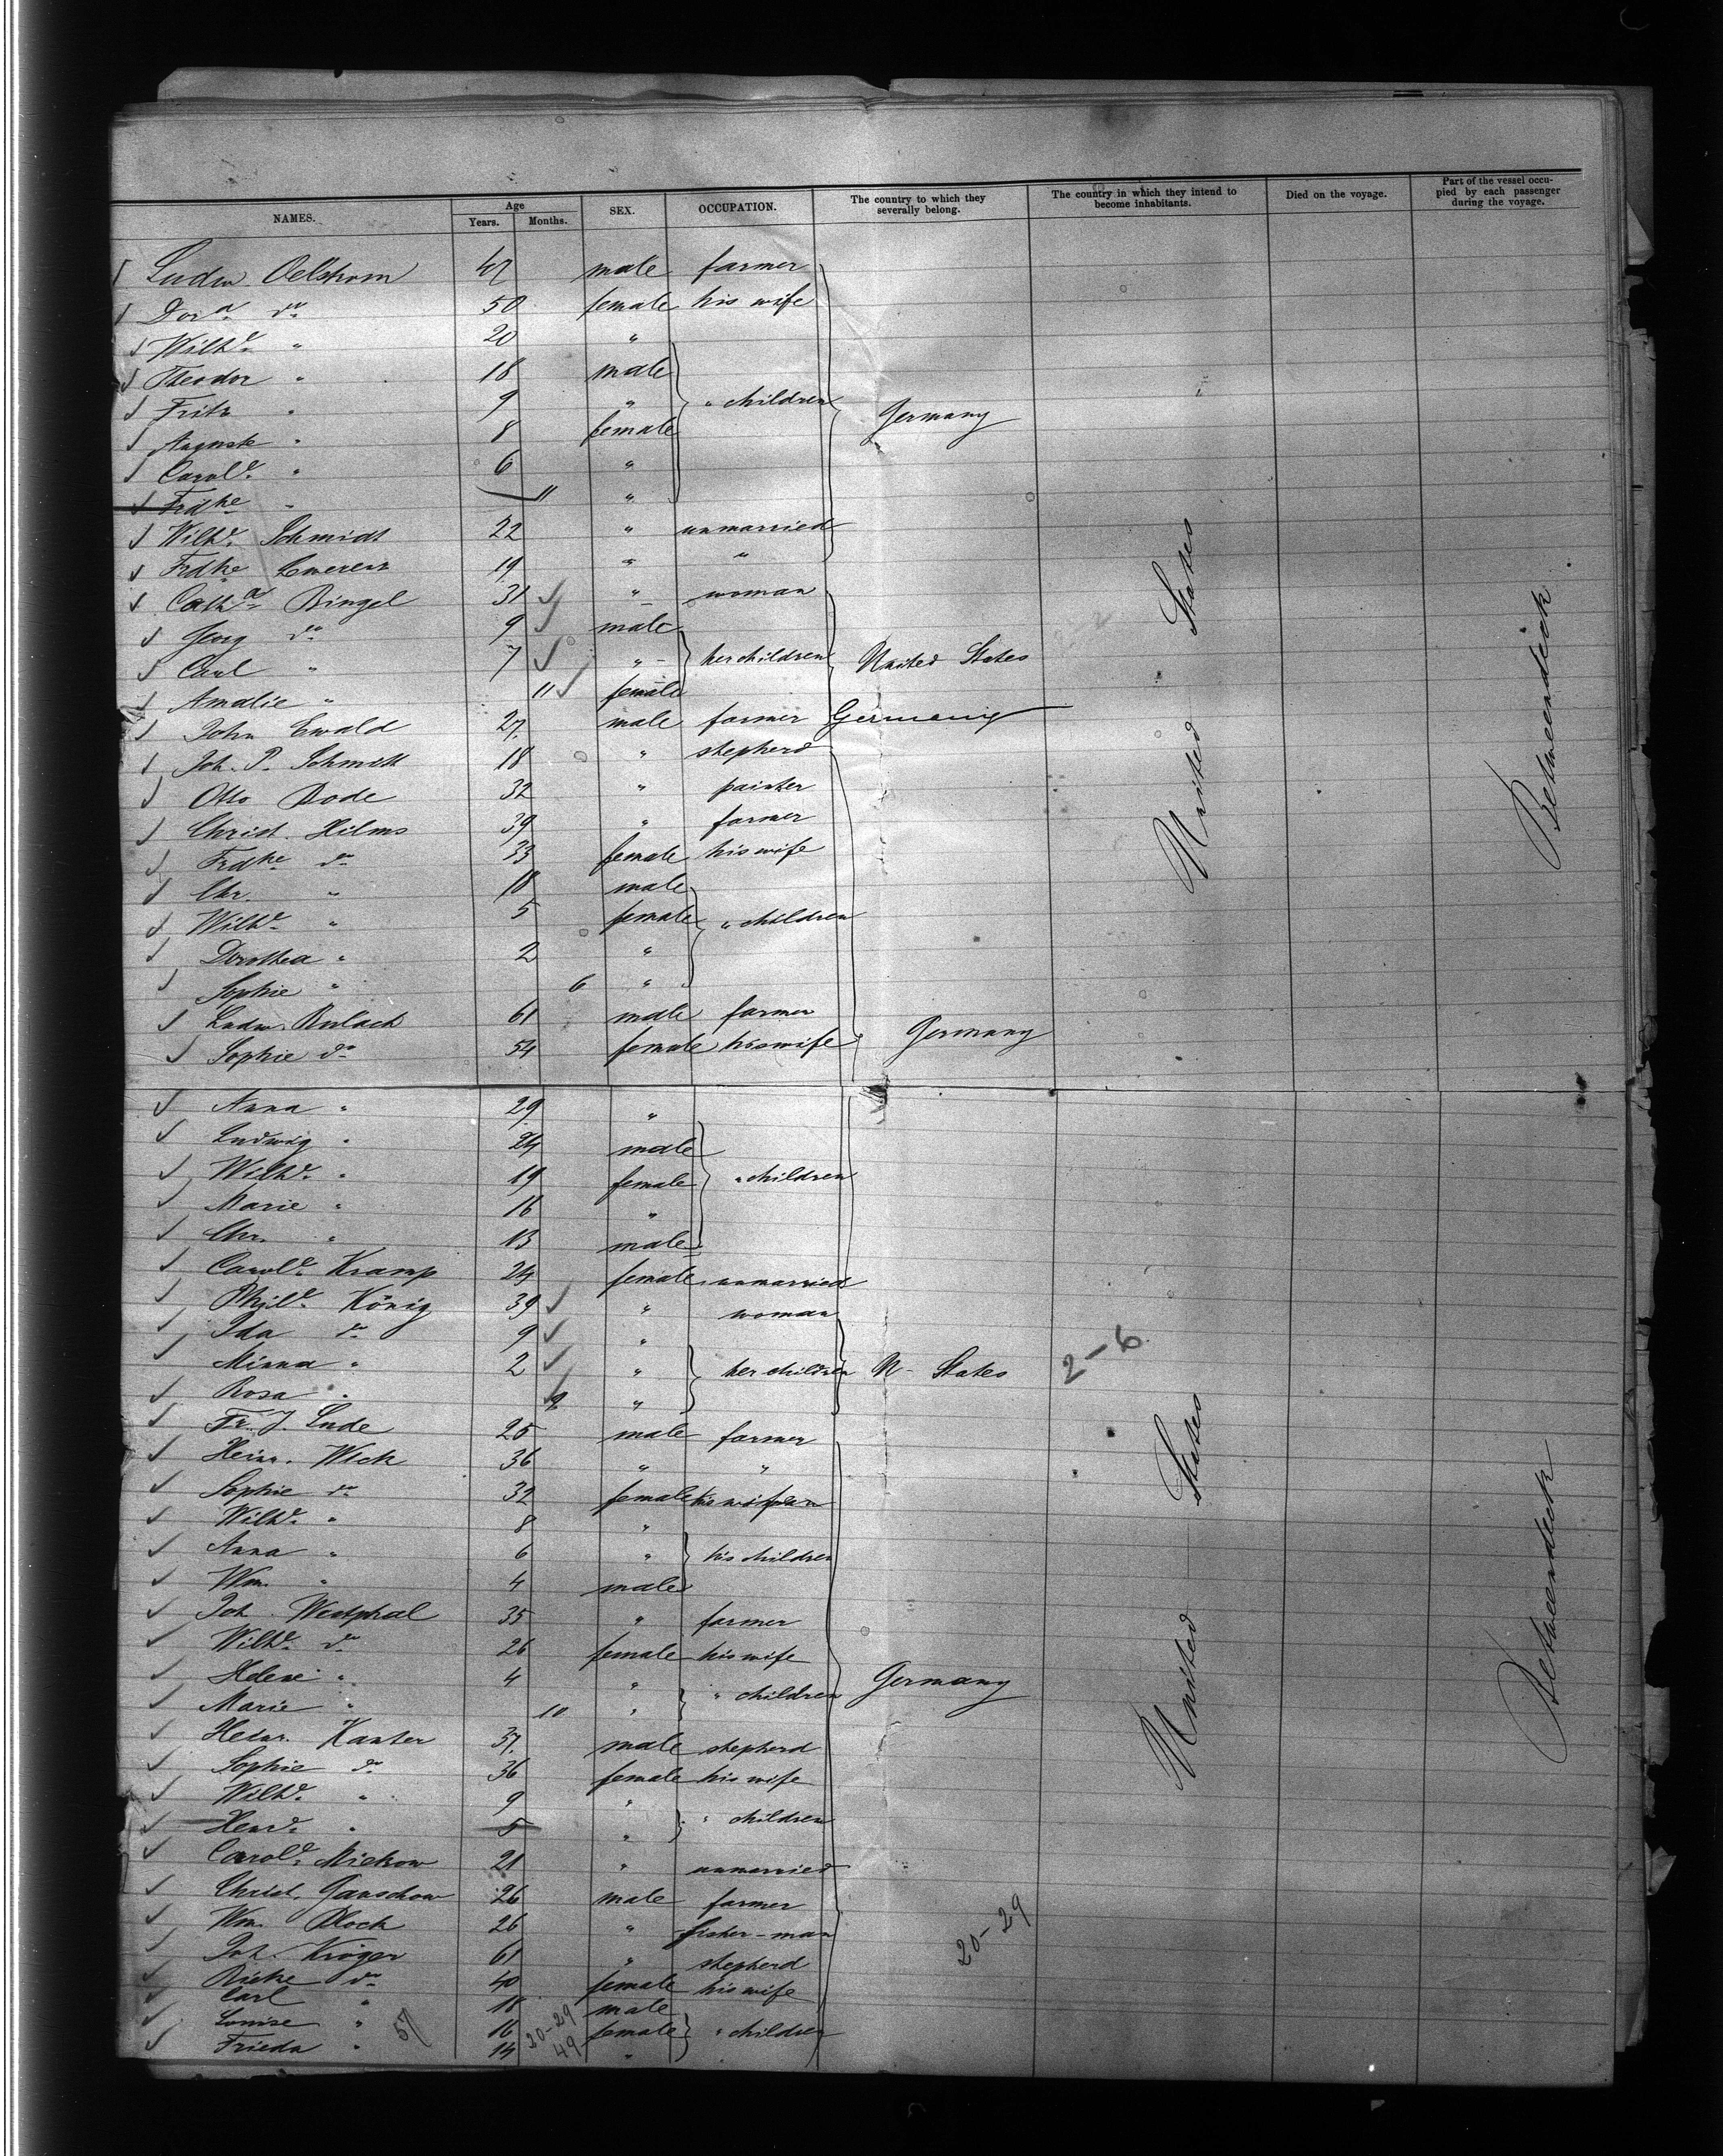 NAMES. Age Years. Months. SEX. OCCUPATION. The country to which they severally belong. The country in which they intend to become inhabitants. Died on the voyage. Part of the vessel occupied by each passenger during the voyage.
Ludw. Oelstrom 47 male farmer
Dora do 50 female his wife
Wilhe " 20 "
Theodor " 18 male
Fritz " 9 " " children Germany
Auguste " 8 female
Carole " 6 "
Frdke " 11 "
Wilhe Schmidt 22 " unmarried
Frdke 19 " "
Catha Bingel 31 " woman
Georg do 9 male
Carl " 7 " her children United States
Amalie " 11 female
John Ewald 27 male farmer Germany
Joh. P. Schmitt 18 " shepherd
Otto Bode 32 " painter
Christ. Hilms 39 " farmer
Frdke do 33 female his wife
Chr. " 18 male
Wilhe " 5 female " children
Dorothea " 2 "
Sophie " 6 "
Ludw. Rulach 61 male farmer
Sophie do 54 female his wife Germany
United States
Betweendeck
Anna " 29 "
Ludwig " 24 male
Wilhe " 19 female " children
Marie " 16 "
Chr. " 13 male
Carole Kramp 24 female unmarried
Phile König 39 " woman
Ida do 9 "
Minna " 2 " her children U- States 2-6
Rosa " 9 "
Fr. J. Lude 25 male farmer
Heinr. Wick 36 " "
Sophie do 32 female his wife
Wilhe " 8 "
Anna " 6 " his children
Wm. " 4 male
Joh. Westphal 35 " farmer
Wilhe do 26 female his wife
Helene " 4 " " children Germany
Marie " 10 "
Heinr. Kanter 37 male shepherd
Sophie do 36 female his wife
Wilhe " 9 " " children
Henre " 5 "
Carole Mickow 21 " unmarried
Christ. Ganschow 26 male farmer
Wm. Block 26 " fisher-man
Joh. Kröger 61 " shepherd
Rieke do 40 female his wife
Carl " 18 male
Louise " 16 female " children
Frieda " 14 "
57 20-29 49
20-29
United States
Betweendeck